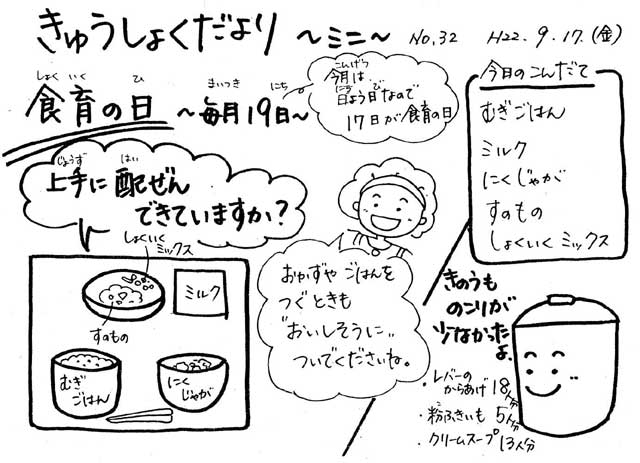 きゅうしょくだより ～ミニ～ No.32 H22.9.17.(金)
しょく いく ひ まいつき にち
食育の日 ～毎月19日～
こんげつ
今月は、
にち よう び
日よう日なので
17日が食育の日
今日のこんだて
むぎごはん
ミルク
にくじゃが
すのもの
しょくいくミックス
じょうず はい
上手に配ぜん
できていますか?
しょくいく
ミックス
ミルク
すのもの
むぎ
ごはん
にく
じゃが
おかずや ごはんを
つぐときも
"おいしそうに"
ついでくださいね。
きのうも
のこりが
少なかった
よ。
・レバーの
からあげ 18人分
・粉ふきいも 5人分
・クリームスープ 13人分